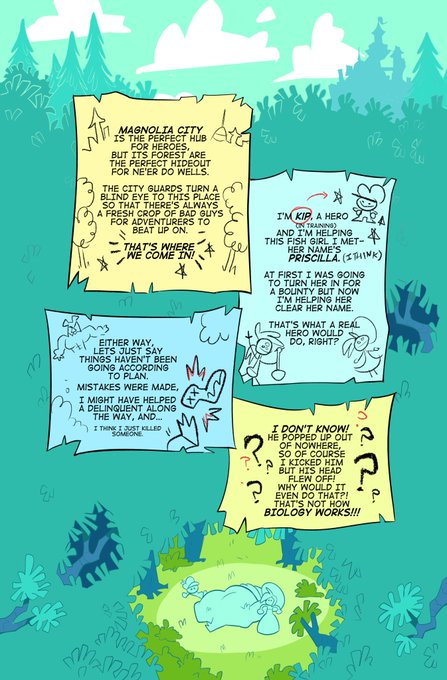 MAGNOLIA CITY
IS THE PERFECT HUB
FOR HEROES,
BUT ITS FOREST ARE
THE PERFECT HIDEOUT
FOR NE'ER DO WELLS.
THE CITY GUARDS TURN A
BLIND EYE TO THIS PLACE
SO THAT THERE'S ALWAYS
A FRESH CROP OF BAD GUYS
FOR ADVENTURERS TO
BEAT UP ON.
THAT'S WHERE
WE COME IN!
I'M KIP, A HERO
(IN TRAINING)
AND I'M HELPING
THIS FISH GIRL I MET-
HER NAME'S
PRISCILLA. (I THINK)
AT FIRST I WAS GOING
TO TURN HER IN FOR
A BOUNTY BUT NOW
I'M HELPING HER
CLEAR HER NAME.
THAT'S WHAT A REAL
HERO WOULD
DO, RIGHT?
EITHER WAY,
LETS JUST SAY
THINGS HAVEN'T BEEN
GOING ACCORDING
TO PLAN.
MISTAKES WERE MADE,
I MIGHT HAVE HELPED
A DELINQUENT ALONG
THE WAY, AND...
I THINK I JUST KILLED
SOMEONE.
I DON'T KNOW!
HE POPPED UP OUT
OF NOWHERE,
SO OF COURSE
I KICKED HIM
BUT HIS HEAD
FLEW OFF!
WHY WOULD IT
EVEN DO THAT?!
THAT'S NOT HOW
BIOLOGY WORKS!!!